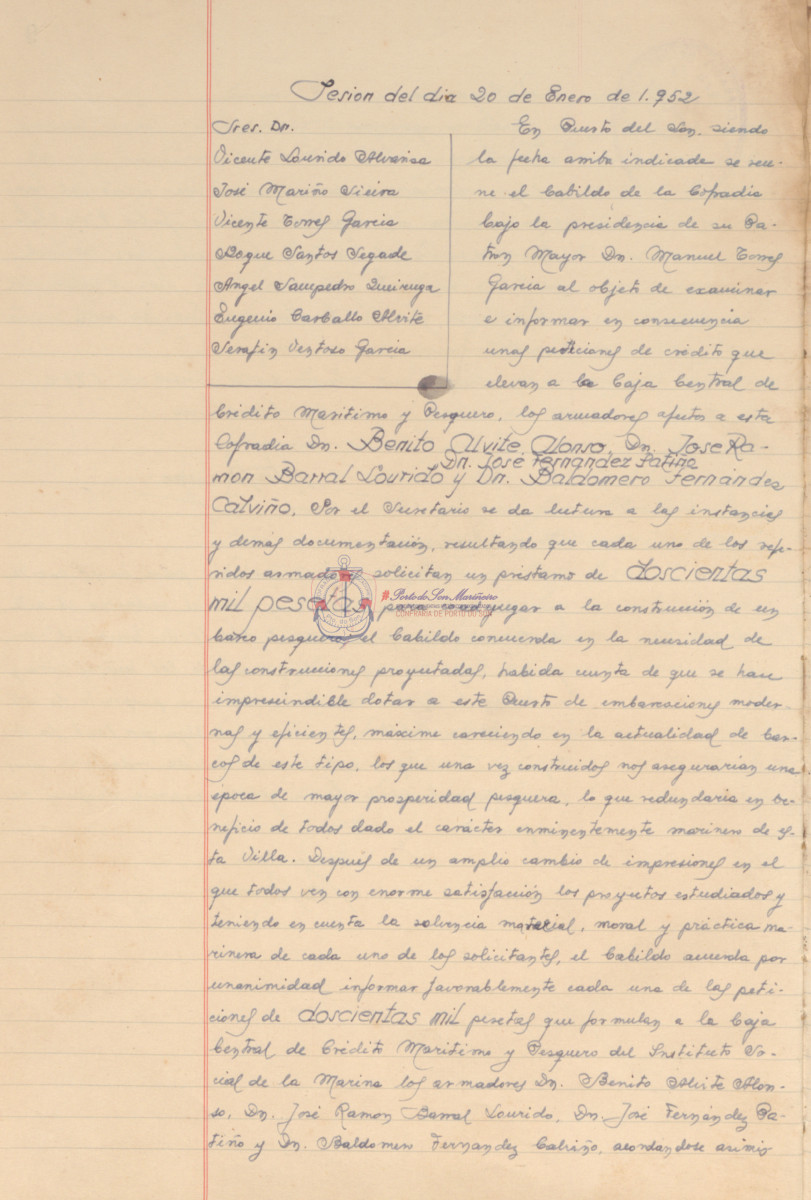 Sesion del dia 20 de Enero de 1.952
Sres. Dn.
Vicente Lourido Alvariza
José Mariño Sieira
Vicente Torres Garcia
Roque Santos Segade
Angel Sampedro Queiruga
Eugenio Carballo Alvite
Serafin Ventoso Garcia
En Puerto del Son, siendo
la fecha arriba indicada se reu-
ne el Cabildo de la Cofradia
bajo la presidencia de su Pa-
tron Mayor Dn. Manuel Torres
Garcia al objeto de examinar
e informar en consecuencia
unas peticiones de crédito que
elevan a la Caja Central de
Crédito Maritimo y Pesquero, los armadores afectos a esta
Cofradia Dn. Benito Alvite Alonso, Dn. Jose Ra-
Dn. José Fernandez Patiña
mon Barral Lourido y Dn. Baldomero Fernandez
Calviño. Por el Secretario se da lectura a las instancias
y demás documentación, resultando que cada uno de los refe-
ridos armadores solicitan un préstamo de doscientas
mil pesetas para coadyugar a la construcción de un
barco pesquero, el Cabildo concuerda en la necesidad de
las construcciones proyectadas, habida cuenta de que se hace
imprescindible dotar a este Puerto de embarcaciones moder-
nas y eficientes, máxime careciendo en la actualidad de bar-
cos de este tipo, los que una vez construidos nos asegurarian una
epoca de mayor prosperidad pesquera, lo que redundaria en be-
neficio de todos dado el carácter enminentemente marinero de es-
ta Villa. Después de un amplio cambio de impresiones en el
que todos ven con enorme satisfacción los proyectos estudiados y
teniendo en cuenta la solvencia material, moral y práctica ma-
rinera de cada uno de los solicitantes, el Cabildo acuerda por
unanimidad informar favorablemente cada una de las peti-
ciones de doscientas mil pesetas que formulan a la Caja
Central de Crédito Maritimo y Pesquero del Instituto So-
cial de la Marina los armadores Dn. Benito Alvite Alon-
so, Dn. José Ramon Barral Lourido, Dn. José Fernández Pa-
tiño y Dn. Baldomero Fernandez Calviño, acordandose asimis
# Porto do Son Mariñeiro
CONFRARÍA DE PORTO DO SON